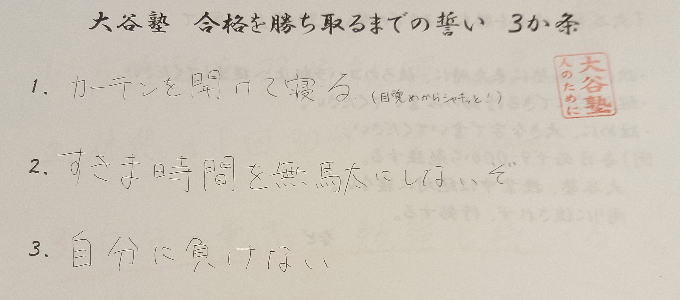 大谷塾 合格を勝ち取るまでの誓い 3か条
大谷塾
人のために
1. カーテンを開けて寝る (目覚めからシャキッと!)
2. すきま時間を無馬太にしないぞ
3. 自分に負けない